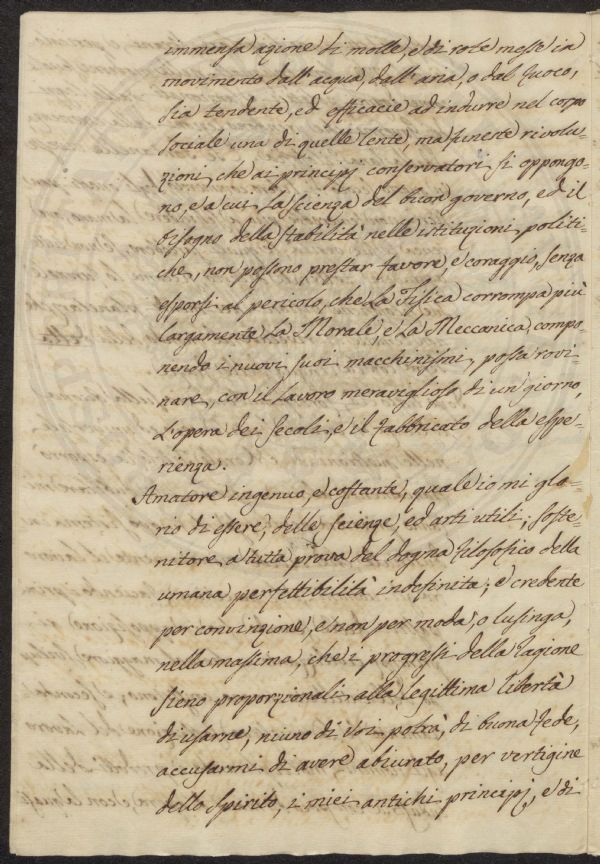 immensa azione di molle, e di rote messe in
movimento dall'acqua, dall'aria, o dal fuoco,
sia tendente, ed efficacie ad indurre nel corpo
sociale una di quelle lente, ma funeste rivolu-
zioni, che ai principj conservatori si oppongo-
no, e a cui La scienza del buon governo, ed il
bisogno della stabilità nelle istituzioni politi-
che, non possono prestar favore, e coraggio, senza
esporsi al pericolo, che La Fisica corrompa più
largamente La Morale, e La Meccanica, compo-
nendo i nuovi suoi macchinismi, possa rovi-
nare, con il Lavoro meraviglioso di un giorno,
L'opera dei secoli, e il fabbricato della espe-
rienza.
Amatore ingenuo, e costante, quale io mi glo-
rio di essere, delle scienze, ed arti utili; soste-
nitore a tutta prova del dogma filosofico della
umana perfettibilità indefinita; e credente
per convinzione, e non per moda, o lusinga,
nella massima, che i progressi della ragione
sieno proporzionali alla legittima libertà
di usarne, niuno di Voi potrà, di buona fede,
accusarmi di avere abiurato, per vertigine
dello spirito, i miei antichi principj, e di